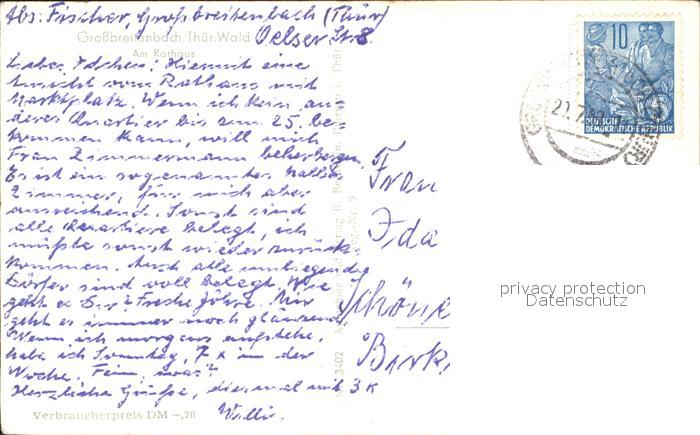 Abs. Fischer, Großbreitenbach (Thür)
Oelser Str. 8
Großbreitenbach Thür. Wald
Am Rathaus
Liebes Idchen! Hiermit eine
Ansicht vom Rathaus mit
Marktplatz. Wenn ich kein an-
deres Quartier bis zum 25. be-
kommen kann, will mich
Frau Zimmermann beherbergen.
Es ist ein sogenanntes halbes
Zimmer, für mich aber
ausreichend. Sonst sind
alle Quartiere belegt, ich
müßte sonst wieder zurück-
kommen. Auch alle umliegenden
Dörfer sind voll belegt. Wie
geht es Dir? Freche Göhre. Mir
geht es immer noch glänzend.
Wenn ich morgens aufstehe,
habe ich Sonntag, 7 x in der
Woche. Fein, was?
Herzliche Grüße, diesmal mit 3 K
Willi.
Verbraucherpreis DM -,20
3402
Frau
Ida
Schöne
Birk
10
DEUTSCHE
DEMOKRATISCHE REPUBLIK
privacy protection
Datenschutz